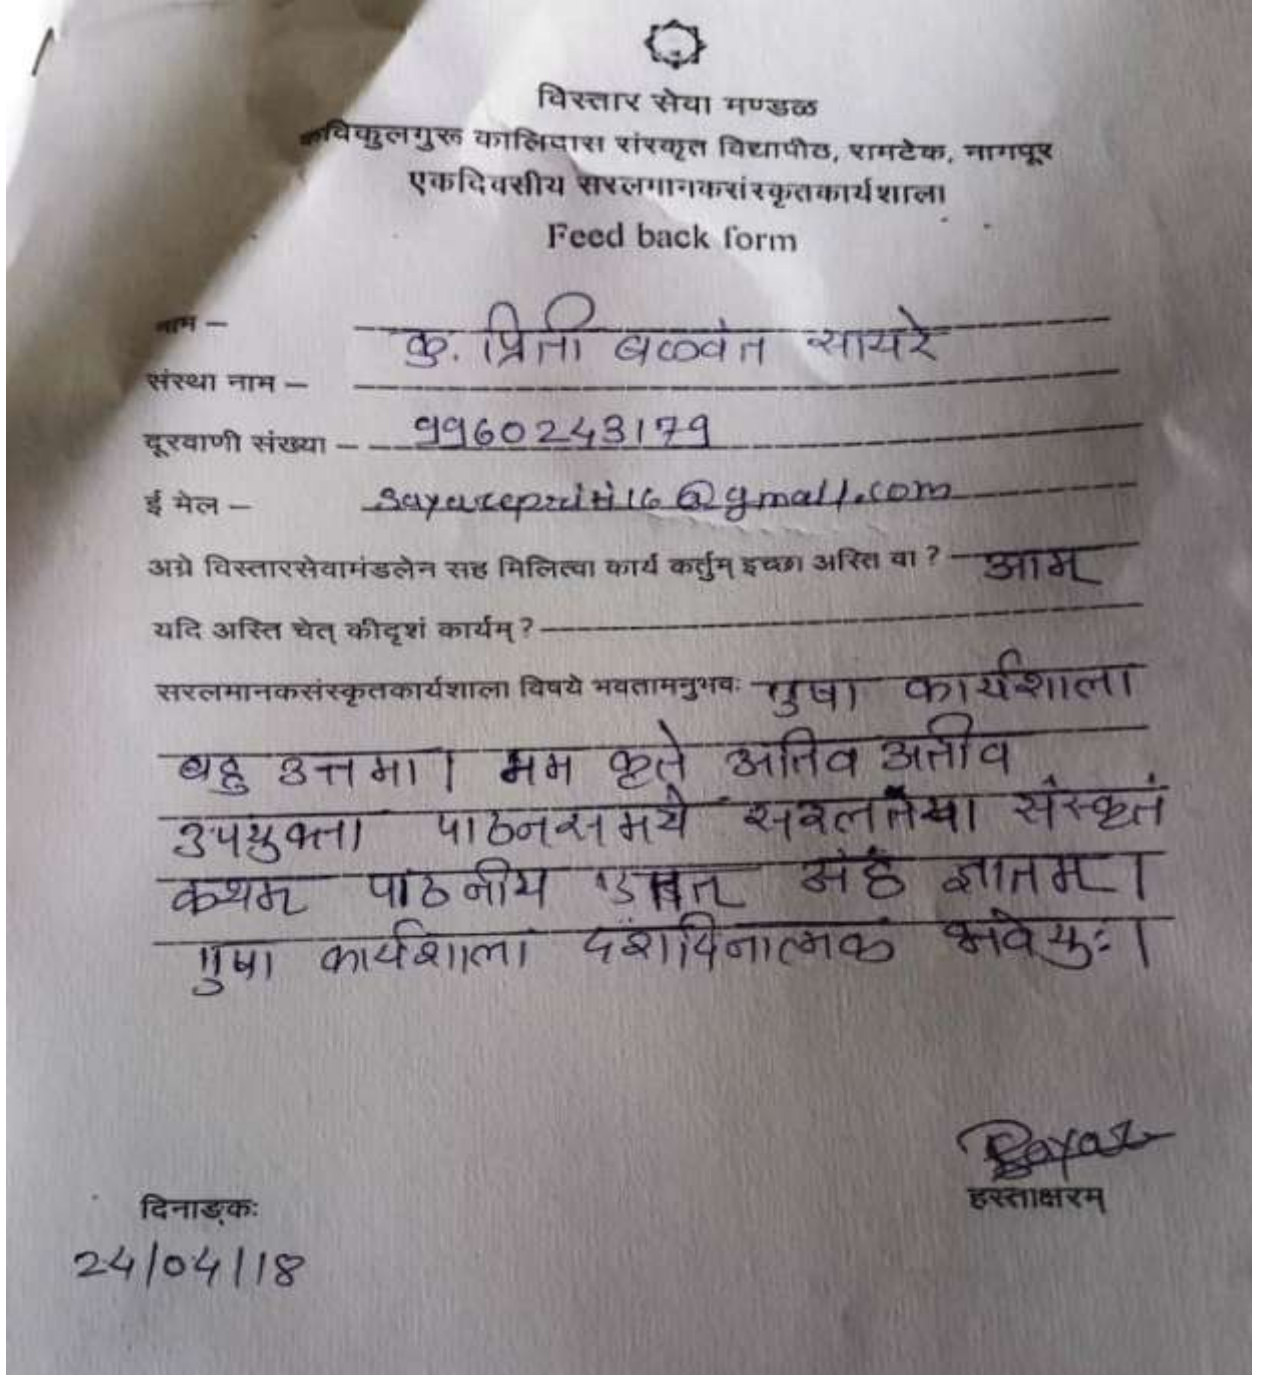 विस्तार सेवा मण्डळ
कविकुलगुरू कालिदास संस्कृत विद्यापीठ, रामटेक, नागपूर
एकदिवसीय सरलमानकसंस्कृतकार्यशाला
Feed back form
नाम – कु. प्रिती बळवंत सायरे
संस्था नाम –
दूरवाणी संख्या – 9960243179
ई मेल – @gmail.com
अग्रे विस्तारसेवामंडलेन सह मिलित्वा कार्य कर्तुम् इच्छा अस्ति वा ? आम्
यदि अस्ति चेत् कीदृशं कार्यम् ?
सरलमानकसंस्कृतकार्यशाला विषये भवतामनुभवः एषा कार्यशाला
बहु उत्तमा । मम कृते अतिव अतीव
उपयुक्ता पाठनसमये सरलतया संस्कृतं
कथम् पाठनीय ज्ञातम् ।
एषा कार्यशाला दशदिनात्मकं भवेयुः ।
हस्ताक्षरम्
दिनाङ्कः
24/04/18